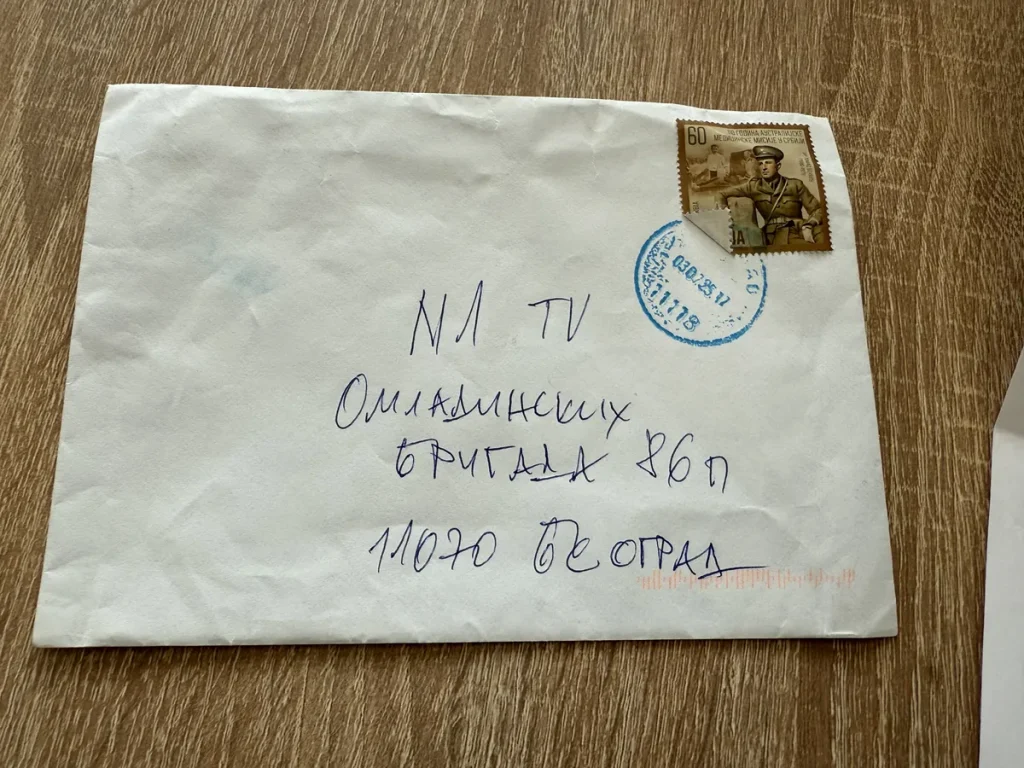 60
110 ГОДИНА АУСТРАЛИЈСКЕ
МЕДИЦИНСКЕ МИСИЈЕ У СРБИЈИ
030785.17
11118
N1 TV
ОМЛАДИНСКИХ
БРИГАДА 86п
11070 БЕОГРАД